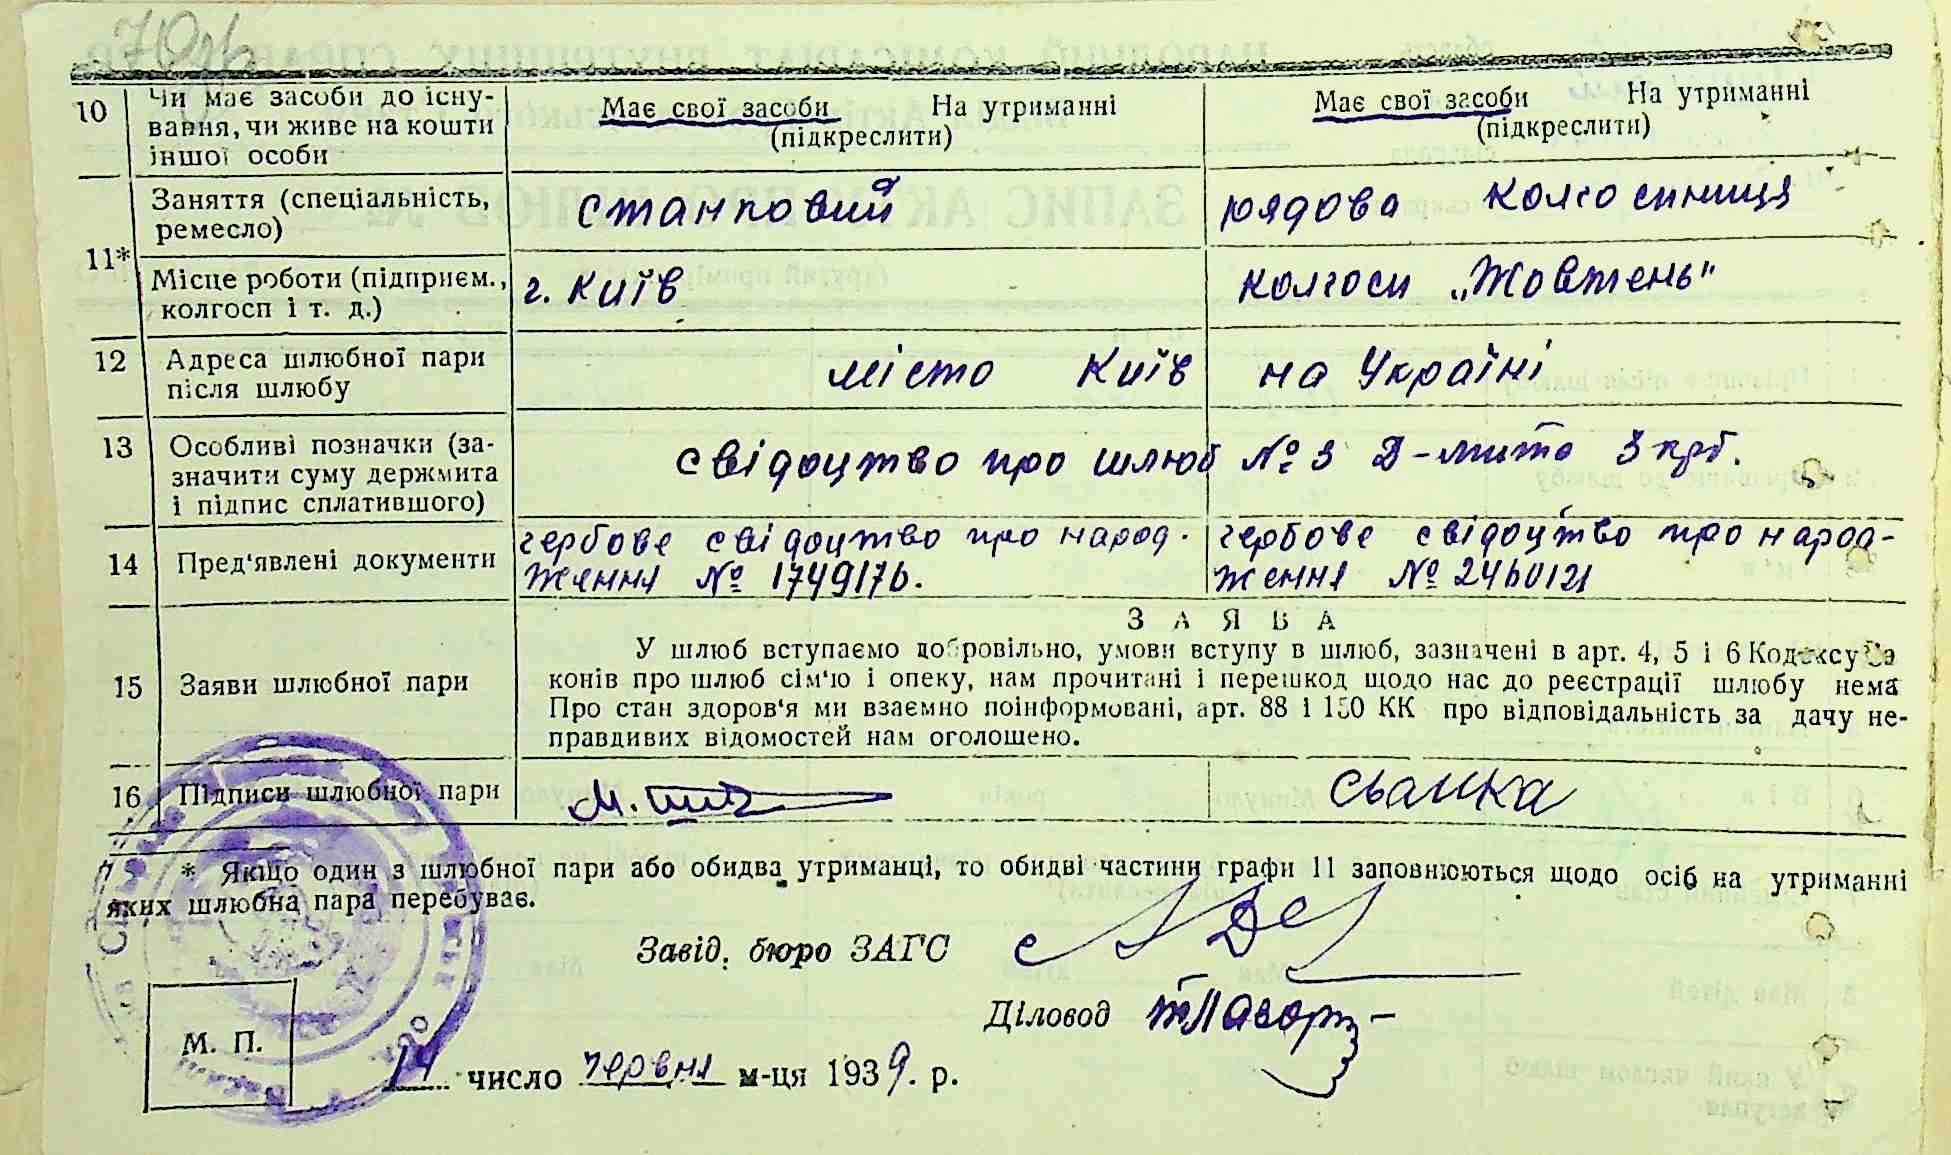 10 Чи має засоби до існу-
вання, чи живе на кошти
іншої особи
Має свої засоби На утриманні
(підкреслити)
Має свої засоби На утриманні
(підкреслити)
11*
Заняття (спеціальність,
ремесло)
станповий
рядова колгоспниця
Місце роботи (підприєм.,
колгосп і т. д.)
г. Київ
колгосп „Жовтень"
12 Адреса шлюбної пари
після шлюбу
місто Київ на Україні
13 Особливі позначки (за-
значити суму держмита
і підпис сплатившого)
свідоцтво про шлюб № 3 Д-мито 3 крб.
14 Пред'явлені документи
гербове свідоцтво про народ-
ження № 1749176.
гербове свідоцтво про народ-
ження № 2460121
15 Заяви шлюбної пари
ЗАЯВА
У шлюб вступаємо добровільно, умови вступу в шлюб, зазначені в арт. 4, 5 і 6 Кодексу За
конів про шлюб сім'ю і опеку, нам прочитані і перешкод щодо нас до реєстрації шлюбу нема
Про стан здоров'я ми взаємно поінформовані, арт. 88 і 150 КК про відповідальність за дачу не-
правдивих відомостей нам оголошено.
16 Підписи шлюбної пари
* Якщо один з шлюбної пари або обидва утриманці, то обидві частини графи 11 заповнюються щодо осіб на утриманні
яких шлюбна пара перебуває.
Завід. бюро ЗАГС
Діловод
М. П.
14 число червня м-ця 1939. р.